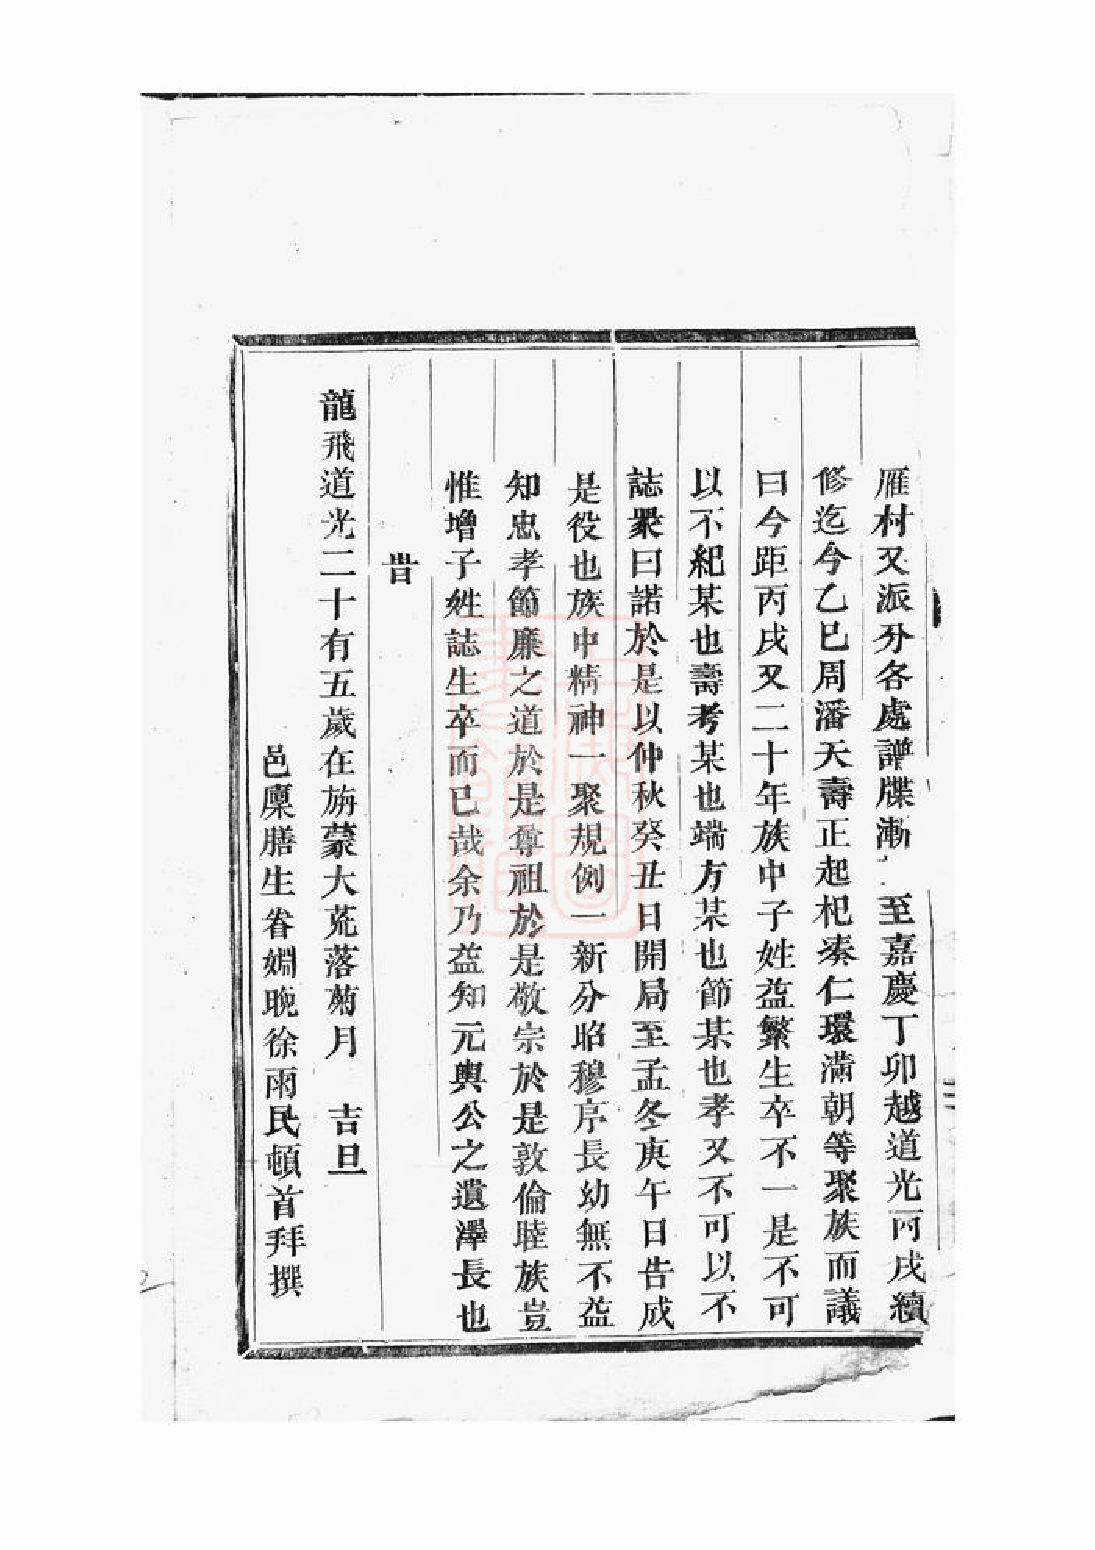 雁村又派分各處譜牒漸至嘉慶丁卯越道光丙戌續
修迄今乙巳周潘天壽正起杞湊仁環滿朝等聚族而議
曰今距丙戌又二十年族中子姓益繁生卒不一是不可
以不紀某也壽考某也端方某也節某也孝又不可以不
誌衆曰諾於是以仲秋癸丑日開局至孟冬庚午日告成
是役也族中精神一聚規例一新分昭穆序長幼無不益
知忠孝節廉之道於是尊祖於是敬宗於是敦倫睦族豈
惟增子姓誌生卒而已哉余乃益知元輿公之遺澤長也
旹
龍飛道光二十有五歲在旃蒙大荒落菊月 吉旦
邑廩膳生眷姻晚徐雨民頓首拜撰